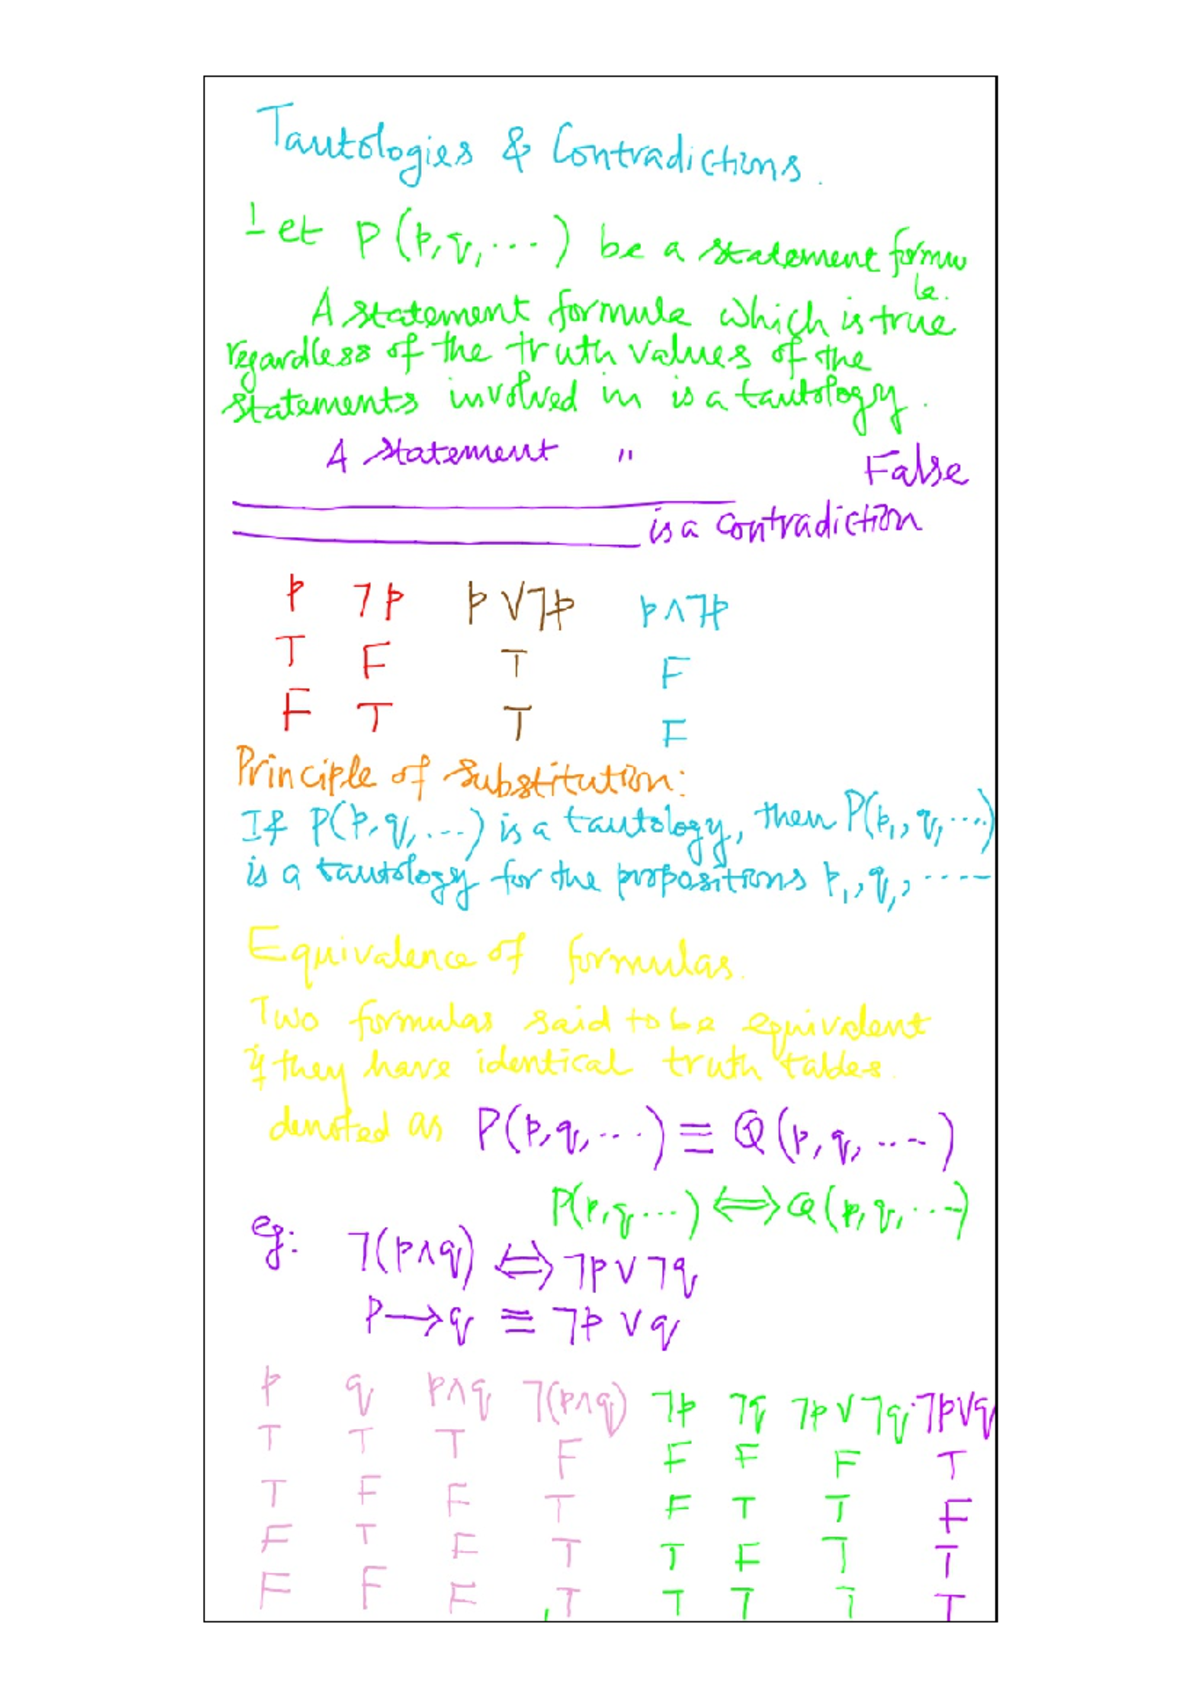 Tautologies & Contradictions.
Let P(p,q,...) be a statement formu
la.
A statement formula which is true
regardless of the truth values of the
statements involved in is a tautology.
A statement " False
is a contradiction
p ¬p p∨¬p p∧¬p
T F T F
F T T F
Principle of Substitution:
If P(p,q,...) is a tautology, then P(p₁,q₁,....)
is a tautology for the propositions p₁,q₁,-----
Equivalence of formulas.
Two formulas said to be equivalent
if they have identical truth tables.
denoted as P(p,q,...) ≡ Q(p,q,...)
P(p,q...) ⟺ Q(p,q,...)
eg: ¬(p∧q) ⟺ ¬p∨¬q
p→q ≡ ¬p∨q
p q p∧q ¬(p∧q) ¬p ¬q ¬p∨¬q ¬p∨q
T T T F F F F T
T F F T F T T F
F T F T T F T T
F F F T T T T T